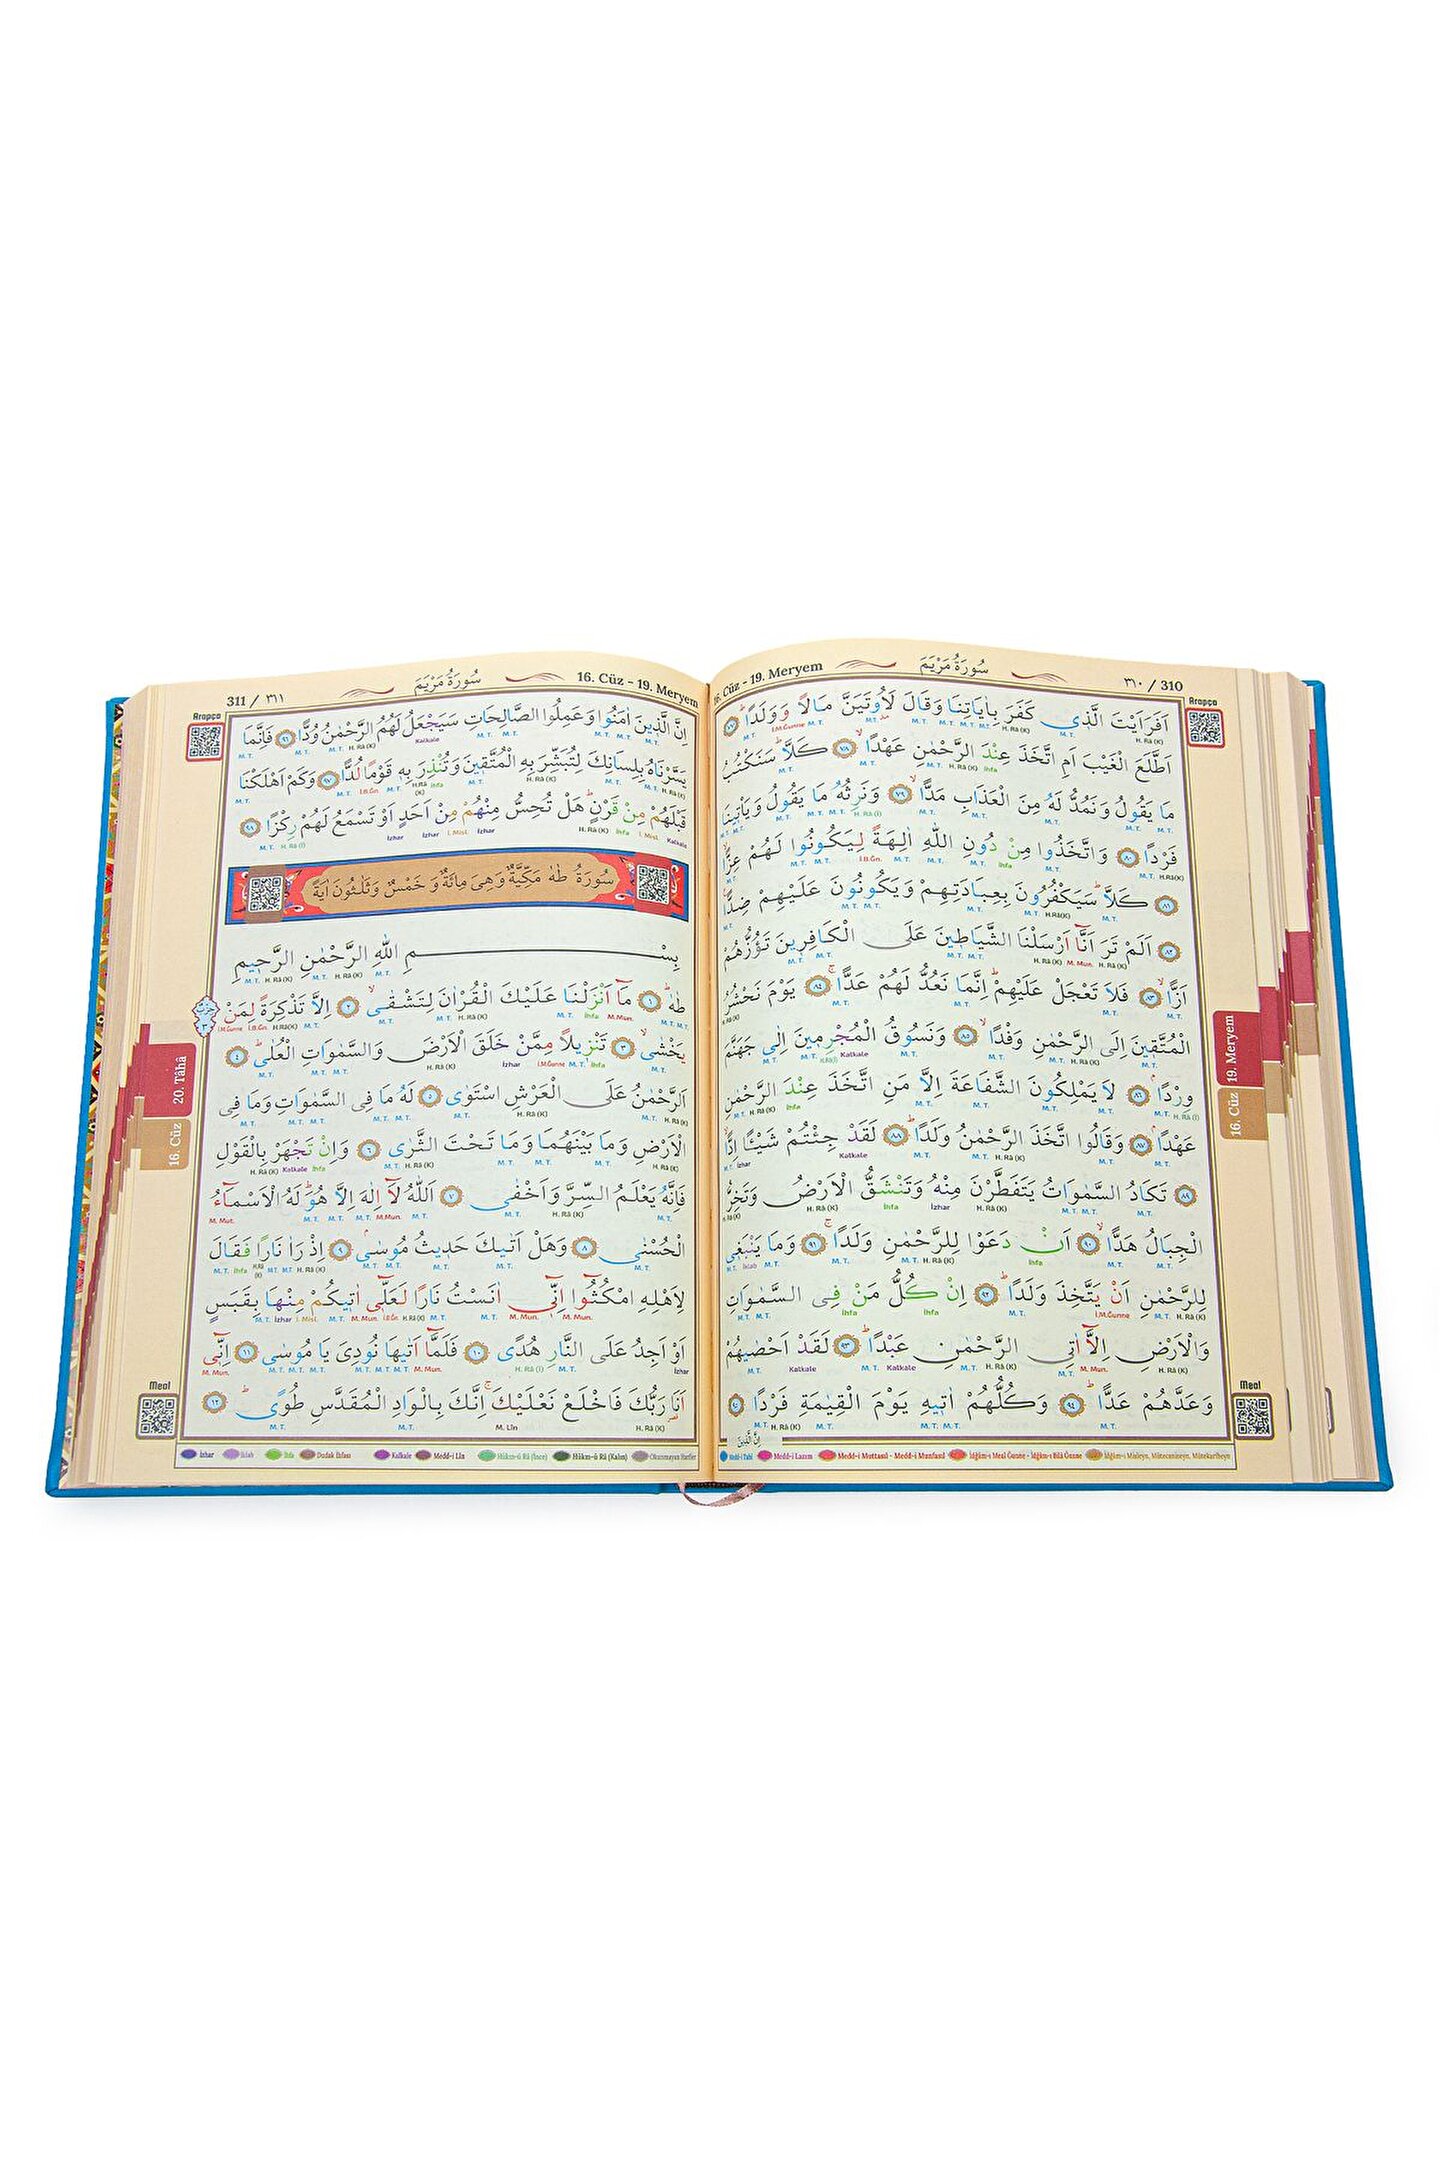 ٣١٠ / 310
سُورَةُ مَرْيَمَ
16. Cüz - 19. Meryem
Arapça
اَفَرَاَيْتَ الَّذ۪ي كَفَرَ بِاٰيَاتِنَا وَقَالَ لَاُوتَيَنَّ مَالاً وَوَلَدًاۜ ﴿٧٧﴾
اَطَّلَعَ الْغَيْبَ اَمِ اتَّخَذَ عِنْدَ الرَّحْمٰنِ عَهْدًاۙ ﴿٧٨﴾ كَلاَّۜ سَنَكْتُبُ
مَا يَقُولُ وَنَمُدُّ لَهُ مِنَ الْعَذَابِ مَدًّاۙ ﴿٧٩﴾ وَنَرِثُهُ مَا يَقُولُ وَيَأْت۪ينَا
فَرْدًا ﴿٨٠﴾ وَاتَّخَذُوا مِنْ دُونِ اللّٰهِ اٰلِهَةً لِيَكُونُوا لَهُمْ عِزًّاۙ
﴿٨١﴾ كَلاَّۜ سَيَكْفُرُونَ بِعِبَادَتِهِمْ وَيَكُونُونَ عَلَيْهِمْ ضِدًّا۟
﴿٨٢﴾ اَلَمْ تَرَ اَنَّٓا اَرْسَلْنَا الشَّيَاط۪ينَ عَلَى الْكَافِر۪ينَ تَؤُزُّهُمْ
اَزًّاۙ ﴿٨٣﴾ فَلاَ تَعْجَلْ عَلَيْهِمْۜ اِنَّمَا نَعُدُّ لَهُمْ عَدًّاۚ ﴿٨٤﴾ يَوْمَ نَحْشُرُ
الْمُتَّق۪ينَ اِلَى الرَّحْمٰنِ وَفْدًاۙ ﴿٨٥﴾ وَنَسُوقُ الْمُجْرِم۪ينَ اِلٰى جَهَنَّمَ
وِرْدًاۢ ﴿٨٦﴾ لاَ يَمْلِكُونَ الشَّفَاعَةَ اِلاَّ مَنِ اتَّخَذَ عِنْدَ الرَّحْمٰنِ
عَهْدًاۢ ﴿٨٧﴾ وَقَالُوا اتَّخَذَ الرَّحْمٰنُ وَلَدًاۜ ﴿٨٨﴾ لَقَدْ جِئْتُمْ شَيْـًٔا اِدًّاۙ
﴿٨٩﴾ تَكَادُ السَّمٰوَاتُ يَتَفَطَّرْنَ مِنْهُ وَتَنْشَقُّ الْاَرْضُ وَتَخِرُّ
الْجِبَالُ هَدًّاۙ ﴿٩٠﴾ اَنْ دَعَوْا لِلرَّحْمٰنِ وَلَدًاۚ ﴿٩١﴾ وَمَا يَنْبَغ۪ي
لِلرَّحْمٰنِ اَنْ يَتَّخِذَ وَلَدًاۜ ﴿٩٢﴾ اِنْ كُلُّ مَنْ فِي السَّمٰوَاتِ
وَالْاَرْضِ اِلَّٓا اٰتِي الرَّحْمٰنِ عَبْدًاۜ ﴿٩٣﴾ لَقَدْ اَحْصٰيهُمْ
وَعَدَّهُمْ عَدًّاۜ ﴿٩٤﴾ وَكُلُّهُمْ اٰت۪يهِ يَوْمَ الْقِيٰمَةِ فَرْدًا
اِنَّ الَّذ۪ينَ
19. Meryem
16. Cüz
Meal
Medd-i Tabî Medd-i Lazım Medd-i Muttasıl - Medd-i Munfasıl İdğâm-ı Meal Ğunne - İdğâm-ı Bilâ Ğunne İdğâm-ı Misleyn, Mütecaniseyn, Mütekaribeyn
16. Cüz - 19. Meryem
سُورَةُ مَرْيَمَ
311 / ٣١١
Arapça
اِنَّ الَّذ۪ينَ اٰمَنُوا وَعَمِلُوا الصَّالِحَاتِ سَيَجْعَلُ لَهُمُ الرَّحْمٰنُ وُدًّا ﴿٩٦﴾ فَاِنَّمَا
يَسَّرْنَاهُ بِلِسَانِكَ لِتُبَشِّرَ بِهِ الْمُتَّق۪ينَ وَتُنْذِرَ بِه۪ قَوْمًا لُدًّا ﴿٩٧﴾ وَكَمْ اَهْلَكْنَا
قَبْلَهُمْ مِنْ قَرْنٍۜ هَلْ تُحِسُّ مِنْهُمْ مِنْ اَحَدٍ اَوْ تَسْمَعُ لَهُمْ رِكْزًا ﴿٩٨﴾
سُورَةُ طٰهٰ مَكِّيَّةٌ وَهِيَ مِائَةٌ وَخَمْسٌ وَثَلٰثُونَ اٰيَةً
بِسْمِ اللّٰهِ الرَّحْمٰنِ الرَّح۪يمِ
طٰهٰۜ ﴿١﴾ مَٓا اَنْزَلْنَا عَلَيْكَ الْقُرْاٰنَ لِتَشْقٰىۙ ﴿٢﴾ اِلاَّ تَذْكِرَةً لِمَنْ
يَخْشٰىۙ ﴿٣﴾ تَنْز۪يلاً مِمَّنْ خَلَقَ الْاَرْضَ وَالسَّمٰوَاتِ الْعُلٰىۜ ﴿٤﴾
اَلرَّحْمٰنُ عَلَى الْعَرْشِ اسْتَوٰى ﴿٥﴾ لَهُ مَا فِي السَّمٰوَاتِ وَمَا فِي
الْاَرْضِ وَمَا بَيْنَهُمَا وَمَا تَحْتَ الثَّرٰى ﴿٦﴾ وَاِنْ تَجْهَرْ بِالْقَوْلِ
فَاِنَّهُ يَعْلَمُ السِّرَّ وَاَخْفٰى ﴿٧﴾ اَللّٰهُ لَٓا اِلٰهَ اِلاَّ هُوَۜ لَهُ الْاَسْمَٓاءُ
الْحُسْنٰى ﴿٨﴾ وَهَلْ اَتٰيكَ حَد۪يثُ مُوسٰىۢ ﴿٩﴾ اِذْ رَاٰ نَارًا فَقَالَ
لِاَهْلِهِ امْكُثُٓوا اِنّ۪ٓي اٰنَسْتُ نَارًا لَعَلّ۪ٓي اٰت۪يكُمْ مِنْهَا بِقَبَسٍ
اَوْ اَجِدُ عَلَى النَّارِ هُدًى ﴿١٠﴾ فَلَمَّٓا اَتٰيهَا نُودِيَ يَا مُوسٰى ﴿١١﴾ اِنّ۪ٓي
اَنَا۬ رَبُّكَ فَاخْلَعْ نَعْلَيْكَۚ اِنَّكَ بِالْوَادِ الْمُقَدَّسِ طُوًىۜ ﴿١٢﴾
20. Tâhâ
16. Cüz
Meal
İzhar İklab İhfa Dudak İhfası Kalkale Medd-i Lîn Hükm-ü Râ (İnce) Hükm-ü Râ (Kalın) Okunmayan Harfler